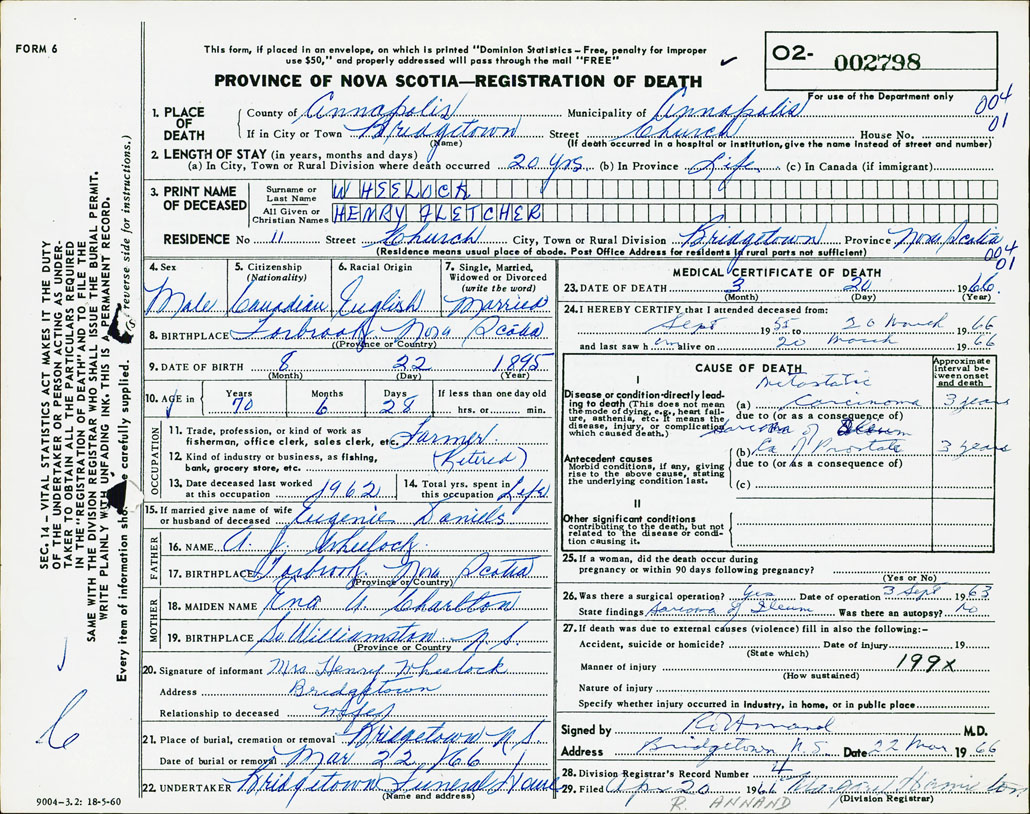 FORM 6
This form, if placed in an envelope, on which is printed "Dominion Statistics – Free, penalty for improper
use $50," and properly addressed will pass through the mail "FREE"
O2- 002798
PROVINCE OF NOVA SCOTIA—REGISTRATION OF DEATH
For use of the Department only
004
01
1. PLACE OF DEATH
County of Annapolis Municipality of Annapolis
If in City or Town Bridgetown Street Church House No.
(Name) (If death occurred in a hospital or institution, give the name instead of street and number)
2. LENGTH OF STAY (in years, months and days)
(a) In City, Town or Rural Division where death occurred 20 yrs. (b) In Province Life (c) In Canada (if immigrant)
3. PRINT NAME OF DECEASED
Surname or Last Name WHEELOCK
All Given or Christian Names HENRY FLETCHER
RESIDENCE No 11 Street Church City, Town or Rural Division Bridgetown Province Nova Scotia
(Residence means usual place of abode. Post Office Address for residents in rural parts not sufficient)
004
01
4. Sex Male
5. Citizenship (Nationality) Canadian
6. Racial Origin English
7. Single, Married, Widowed or Divorced (write the word) Married
8. BIRTHPLACE Torbrook, Nova Scotia
(Province or Country)
9. DATE OF BIRTH 8 22 1895
(Month) (Day) (Year)
10. AGE in Years 70 Months 6 Days 28 If less than one day old hrs. or min.
OCCUPATION
11. Trade, profession, or kind of work as
fisherman, office clerk, sales clerk, etc. Farmer
12. Kind of industry or business, as fishing, (Retired)
bank, grocery store, etc.
13. Date deceased last worked at this occupation 1962
14. Total yrs. spent in this occupation Life
15. If married give name of wife
or husband of deceased Eugenie Daniels
FATHER
16. NAME A. J. Wheelock
17. BIRTHPLACE Torbrook, Nova Scotia
(Province or Country)
MOTHER
18. MAIDEN NAME Ena A. Charlton
19. BIRTHPLACE So Williamston N.S.
(Province or Country)
20. Signature of informant Mrs. Henry Wheelock
Address Bridgetown
Relationship to deceased wife
21. Place of burial, cremation or removal Bridgetown N.S.
Date of burial or removal Mar 22, /66
22. UNDERTAKER Bridgetown Funeral Home
(Name and address)
MEDICAL CERTIFICATE OF DEATH
23. DATE OF DEATH 3 20 1966.
(Month) (Day) (Year)
24. I HEREBY CERTIFY that I attended deceased from:
Sept 1955 to 20 March 1966
and last saw him alive on 20 March 1966
CAUSE OF DEATH
Approximate interval between onset and death
I
Disease or condition directly leading to death (This does not mean
the mode of dying, e.g., heart failure, asthenia, etc. It means the
disease, injury, or complication which caused death.)
Metastatic
(a) Carcinoma 3 years
due to (or as a consequence of)
Sarcoma of Ileum
Antecedent causes
Morbid conditions, if any, giving
rise to the above cause, stating
the underlying condition last.
(b) Ca of Prostate 3 years
due to (or as a consequence of)
(c)
II
Other significant conditions
contributing to the death, but not
related to the disease or condition causing it.
25. If a woman, did the death occur during
pregnancy or within 90 days following pregnancy?
(Yes or No)
26. Was there a surgical operation? Yes Date of operation 3 Sept 1963
State findings Sarcoma of Ileum Was there an autopsy? No
27. If death was due to external causes (violence) fill in also the following:–
Accident, suicide or homicide? Date of injury 19
(State which)
Manner of injury 199x
(How sustained)
Nature of injury
Specify whether injury occurred in industry, in home, or in public place
Signed by R. Annand M.D.
Address Bridgetown N.S. Date 22 Mar 1966
28. Division Registrar's Record Number 4
29. Filed Apr 20 1966 Margary Hamilton
(Division Registrar)
R. ANNAND
9004-3.2: 18-5-60
SEC. 14 – VITAL STATISTICS ACT MAKES IT THE DUTY
OF THE UNDERTAKER OR PERSON ACTING AS UNDER-
TAKER TO OBTAIN ALL THE PARTICULARS REQUIRED
IN THE "REGISTRATION OF DEATH" AND TO FILE THE
SAME WITH THE DIVISION REGISTRAR WHO SHALL ISSUE THE BURIAL PERMIT.
WRITE PLAINLY WITH UNFADING INK. THIS IS A PERMANENT RECORD.
Every item of information should be carefully supplied. (See reverse side for instructions.)